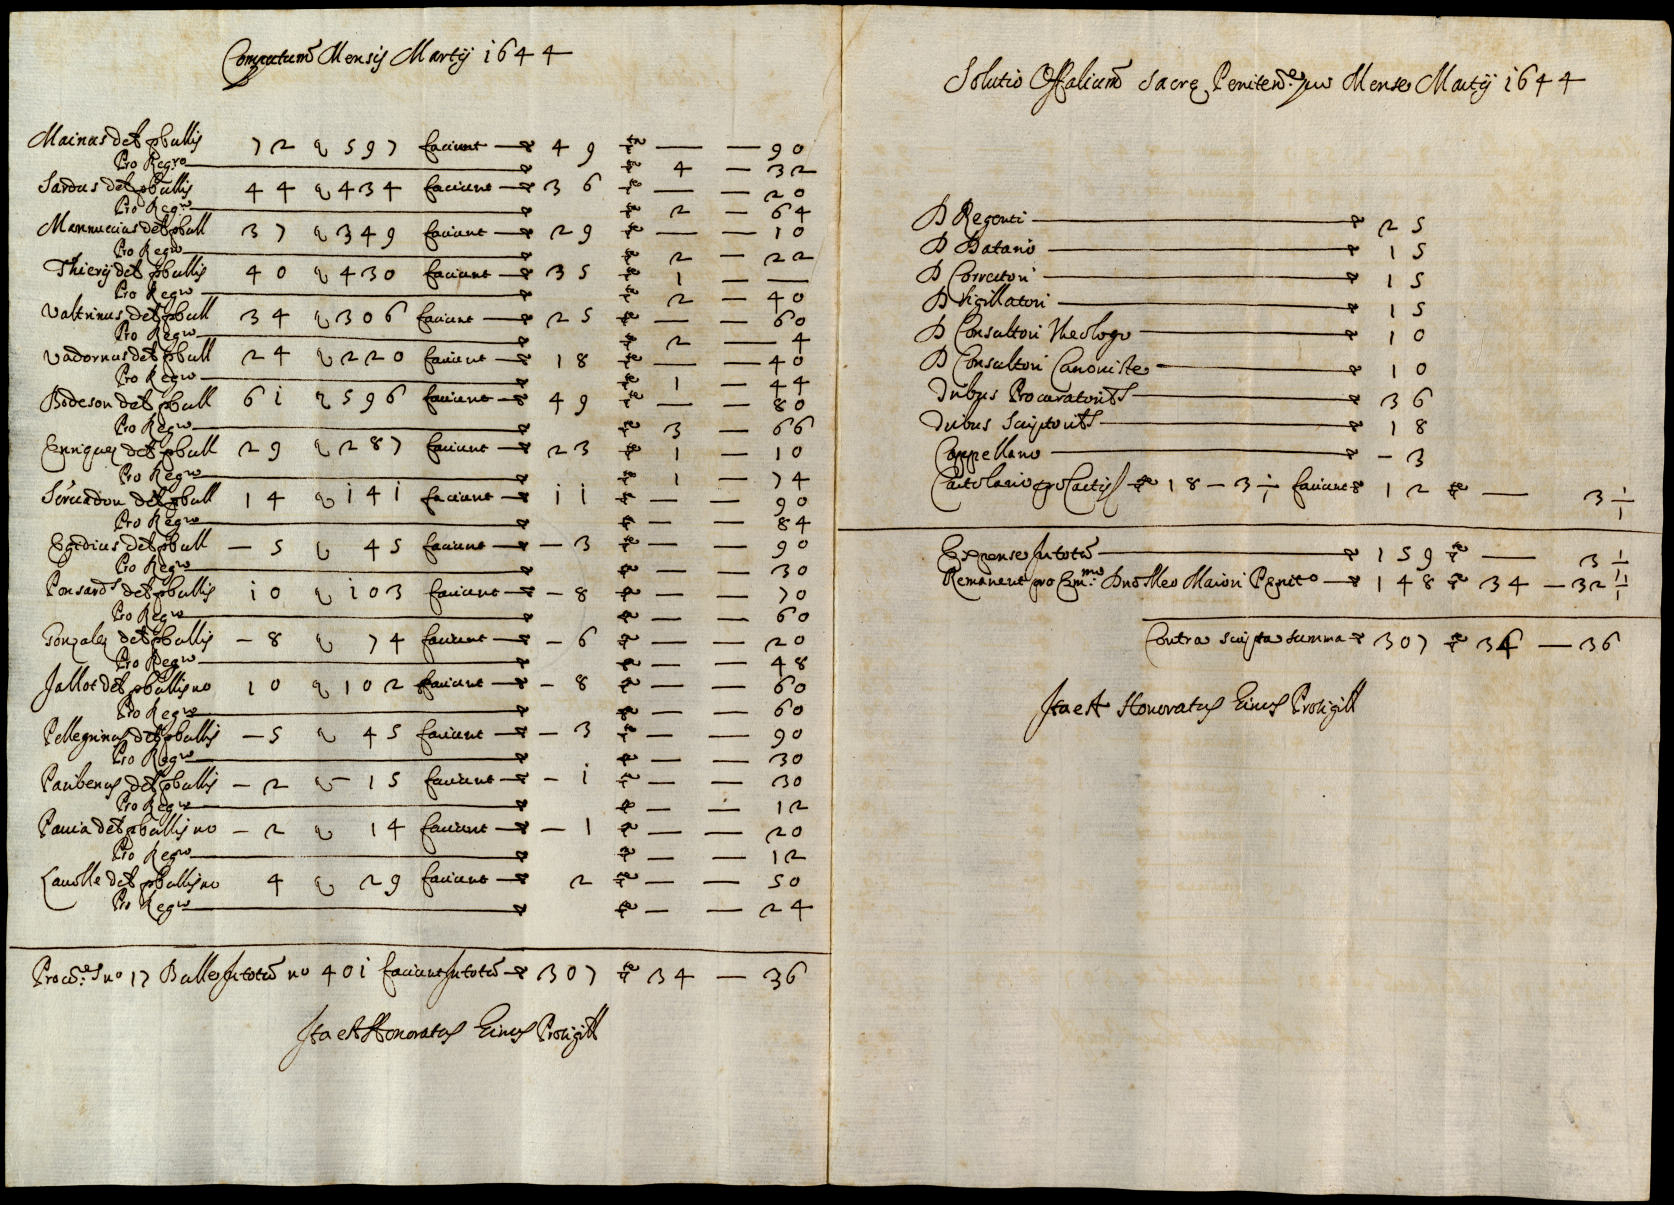 Computum Mensis Martij 1644
Mainus det p bullis 72 q 597 faciunt 49 — — 90
Pro Regro 4 — 32
Sardus det p bullis 44 q 434 faciunt 36 — — 20
Pro Regro 2 — 64
Mannuccius det p bull 37 q 349 faciunt 29 — — 10
Pro Regro 2 — 22
Thierij det p bullis 40 q 430 faciunt 35 1 — —
Pro Regro 2 — 40
Valtrinus det p bull 34 q 306 faciunt 25 — — 60
Pro Regro 2 — 4
Vadornus det p bull 24 q 220 faciunt 18 — — 40
Pro Regro 1 — 44
Bodeson det p bull 61 q 596 faciunt 49 — — 80
Pro Regro 3 — 66
Enriquez det p bull 29 q 287 faciunt 23 1 — 10
Pro Regro 1 — 74
Servadon det p bull 14 q 141 faciunt 11 — — 90
Pro Regro — — 84
Egidius det p bull — 5 q 45 faciunt — 3 — — 90
Pro Regro — — 30
Ponsard det p bullis 10 q 103 faciunt — 8 — — 70
Pro Regro — — 60
Gonzalez det p bullis — 8 q 74 faciunt — 6 — — 20
Pro Regro — — 48
Jallot det p bullis no 10 q 102 faciunt — 8 — — 60
Pro Regro — — 60
Pellegrinus det p bullis — 5 q 45 faciunt — 3 — — 90
Pro Regro — — 30
Paribenus det p bullis — 2 q — 15 faciunt — 1 — — 30
Pro Regro — — 12
Pavia det p bullis no — 2 q 14 faciunt — 1 — — 20
Pro Regro — — 12
det p bullis no 4 q 29 faciunt 2 — — 50
Pro Regro — — 24
no 17 Bulle In totũ no 401 faciunt In totũ 307 34 — 36
Ita est Honoratus
Solutio Offalium Sacrę Peniten Mense Martij 1644
D Regenti 25
D Datario 15
D Correttori 15
D Sigillatori 15
D Consultori Theologo 10
D Consultori Canoniste 10
Duibus Procuratoribs 36
Duibus Scriptoribs 18
Cappellano — 3
Cartolario pro Cartis 18 — 3 1/1 faciunt 12 — 3 1/1
Expense In totũ 159 — 3 1/1
Remanent pro Emmo Dno Meo Maiori Penito 148 34 — 32 11/1
Contra scripta summa 307 34 — 36
Ita est Honoratus